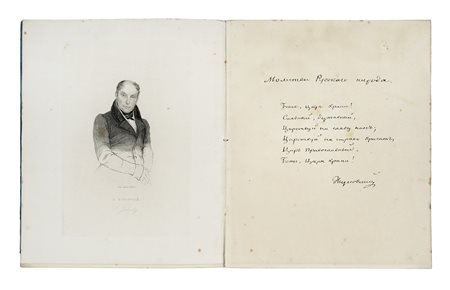 Молитва Русскаго народа.
Боже, Царя храни!
Сильный, Державный,
Царствуй на славу намъ;
Царствуй на страхъ врагамъ,
Царь Православный!
Боже, Царя храни!
Жуковскій